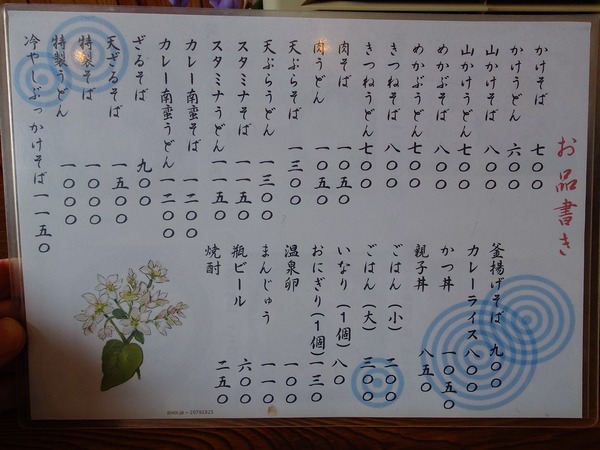 お品書き
かけそば 七〇〇
かけうどん 六〇〇
山かけそば 八〇〇
山かけうどん 七〇〇
めかぶそば 八〇〇
めかぶうどん 七〇〇
きつねそば 八〇〇
きつねうどん 七〇〇
肉そば 一〇五〇
肉うどん 一〇五〇
天ぷらそば 一三〇〇
天ぷらうどん 一三〇〇
スタミナそば 一一五〇
スタミナうどん 一一五〇
カレー南蛮そば 一二〇〇
カレー南蛮うどん 一二〇〇
ざるそば 九〇〇
天ざるそば 一五〇〇
特製そば 一〇〇〇
特製うどん 一〇〇〇
冷やしぶっかけそば 一一五〇
釜揚げそば 九〇〇
カレーライス 八〇〇
かつ丼 一〇五〇
親子丼 八五〇
ごはん(小) 二〇〇
ごはん(大) 三〇〇
いなり(1個) 八〇
おにぎり(1個) 一三〇
温泉卵 一〇〇
まんじゅう 一一〇
瓶ビール 六〇〇
焼酎 二五〇